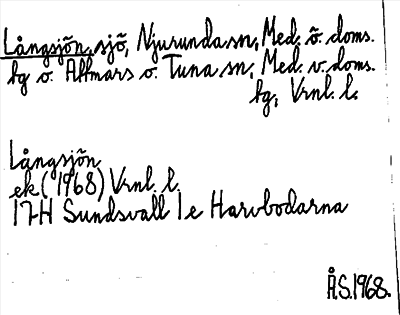 Långsjön, sjö, Njurunda sn, Med. ö. doms.
hg o. Attmars o. Tuna sn, Med. v. doms.
hg, Vrnl. l.
Långsjön
ek (1968) Vrnl. l.
17H Sundsvall 1e Harvbodarna
ÅS.1968.